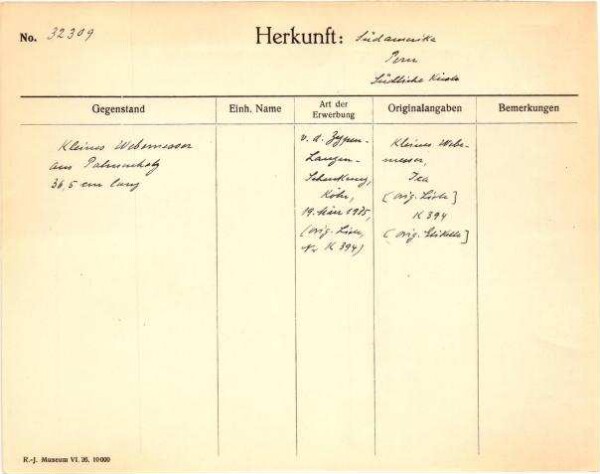 No. 32309
Herkunft: Südamerika
Peru
Südliche Küste
Gegenstand
Einh. Name
Art der
Erwerbung
Originalangaben
Bemerkungen
Kleines Webemesser
aus Palmenholz
36,5 cm lang
v. d. Zypen-
Langen-
Schenkung,
Köln,
19. März
(orig. Liste,
Nr K 394)
Kleines Webe-
messer,
Ica
(orig. Liste]
K 394
(orig. Etikette]
R.-J. Museum VI. 26. 10 000